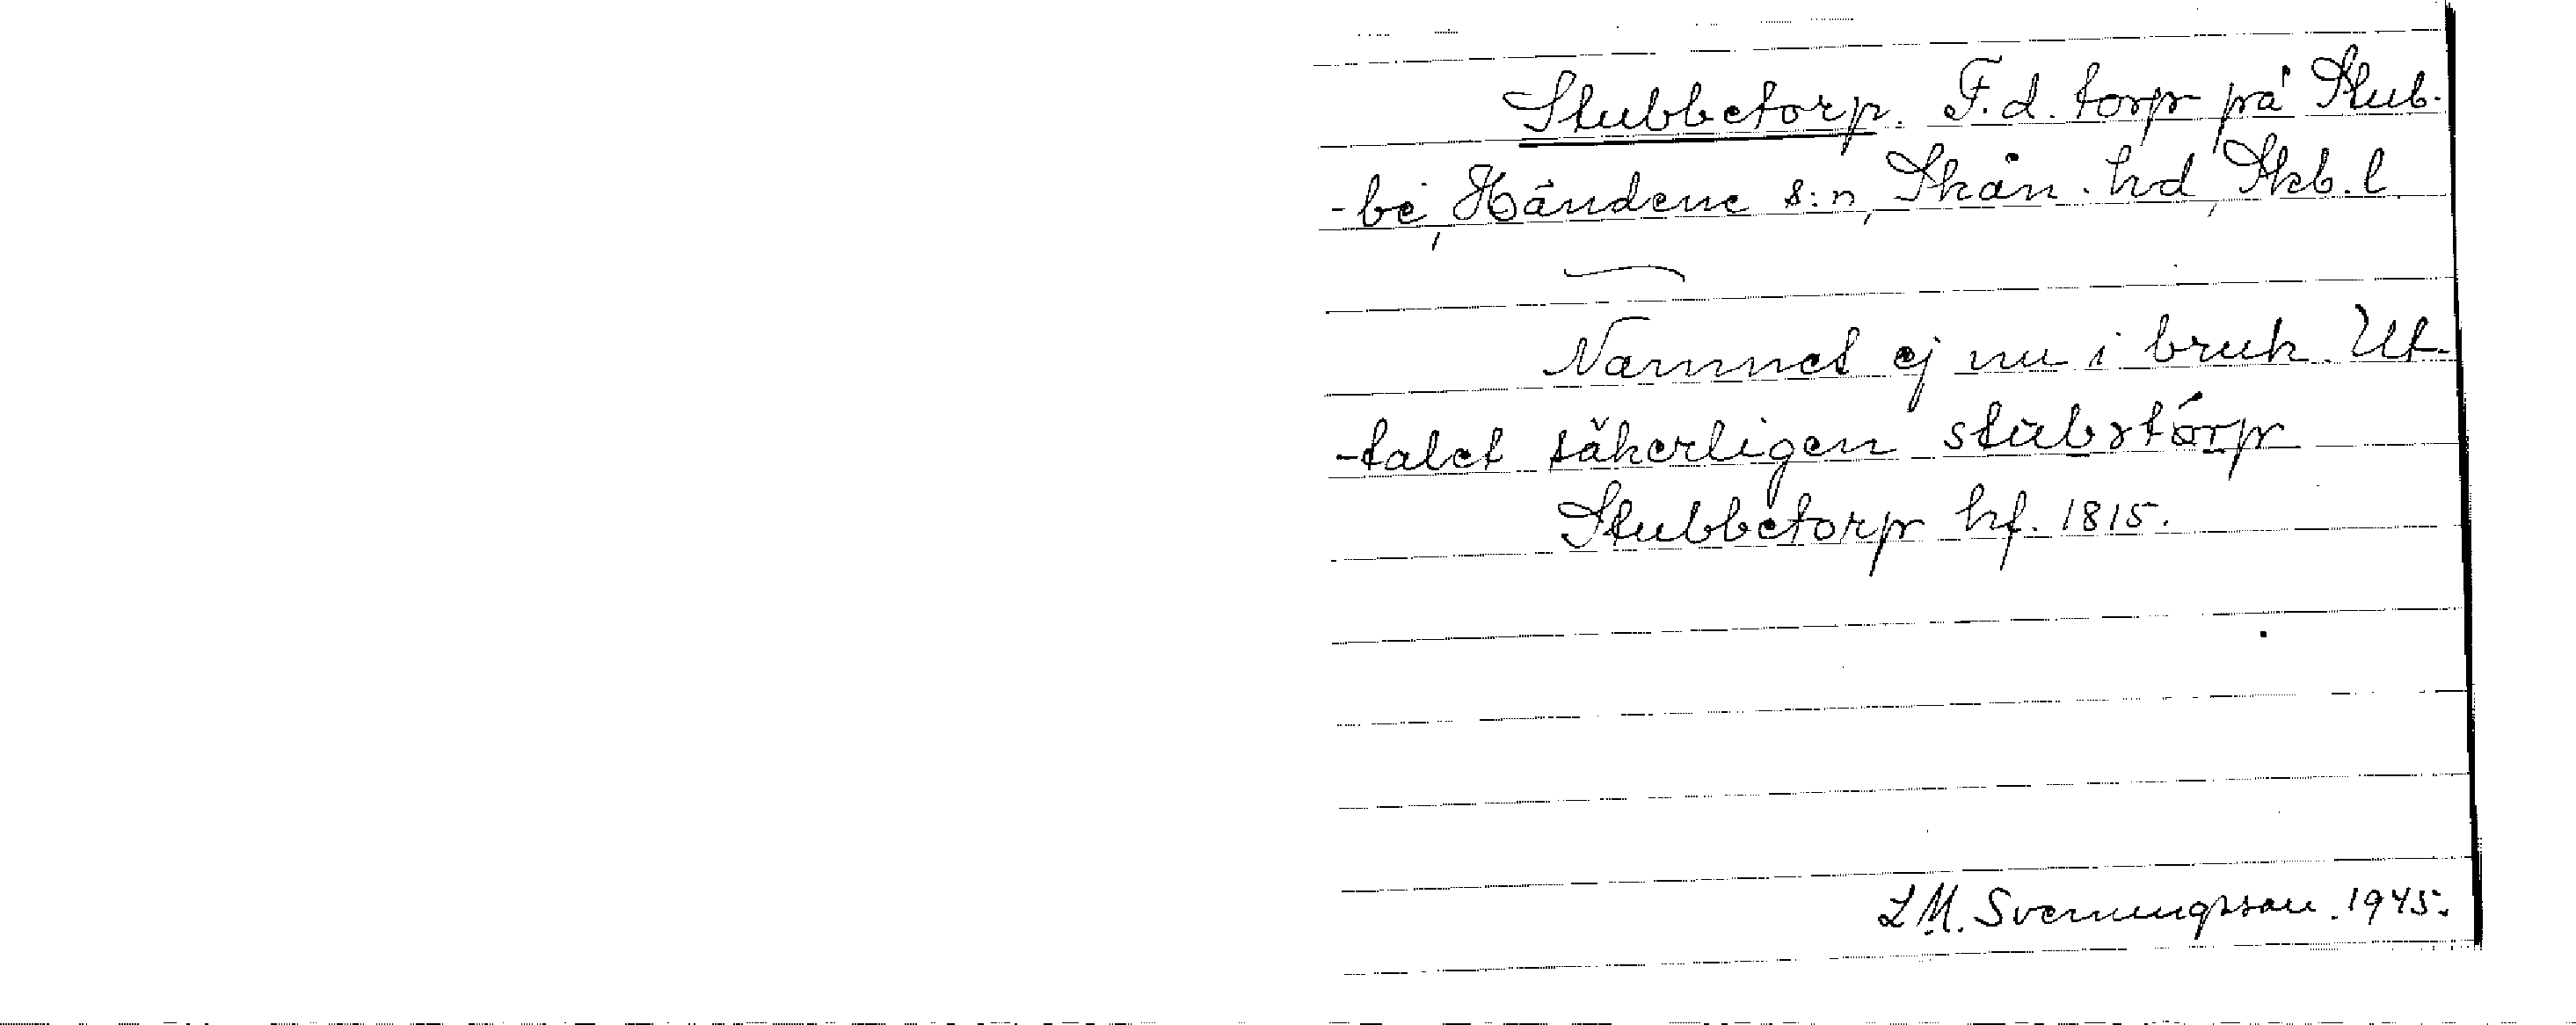 Stubbetorp. F.d. torp på Stub-
-be, Händene s:n, Skån. hd, Skb.l.
Namnet ej nu i bruk. Ut-
-talet säkerligen
Stubbetorp hf. 1815.
L M. Svenungsson. 1945.